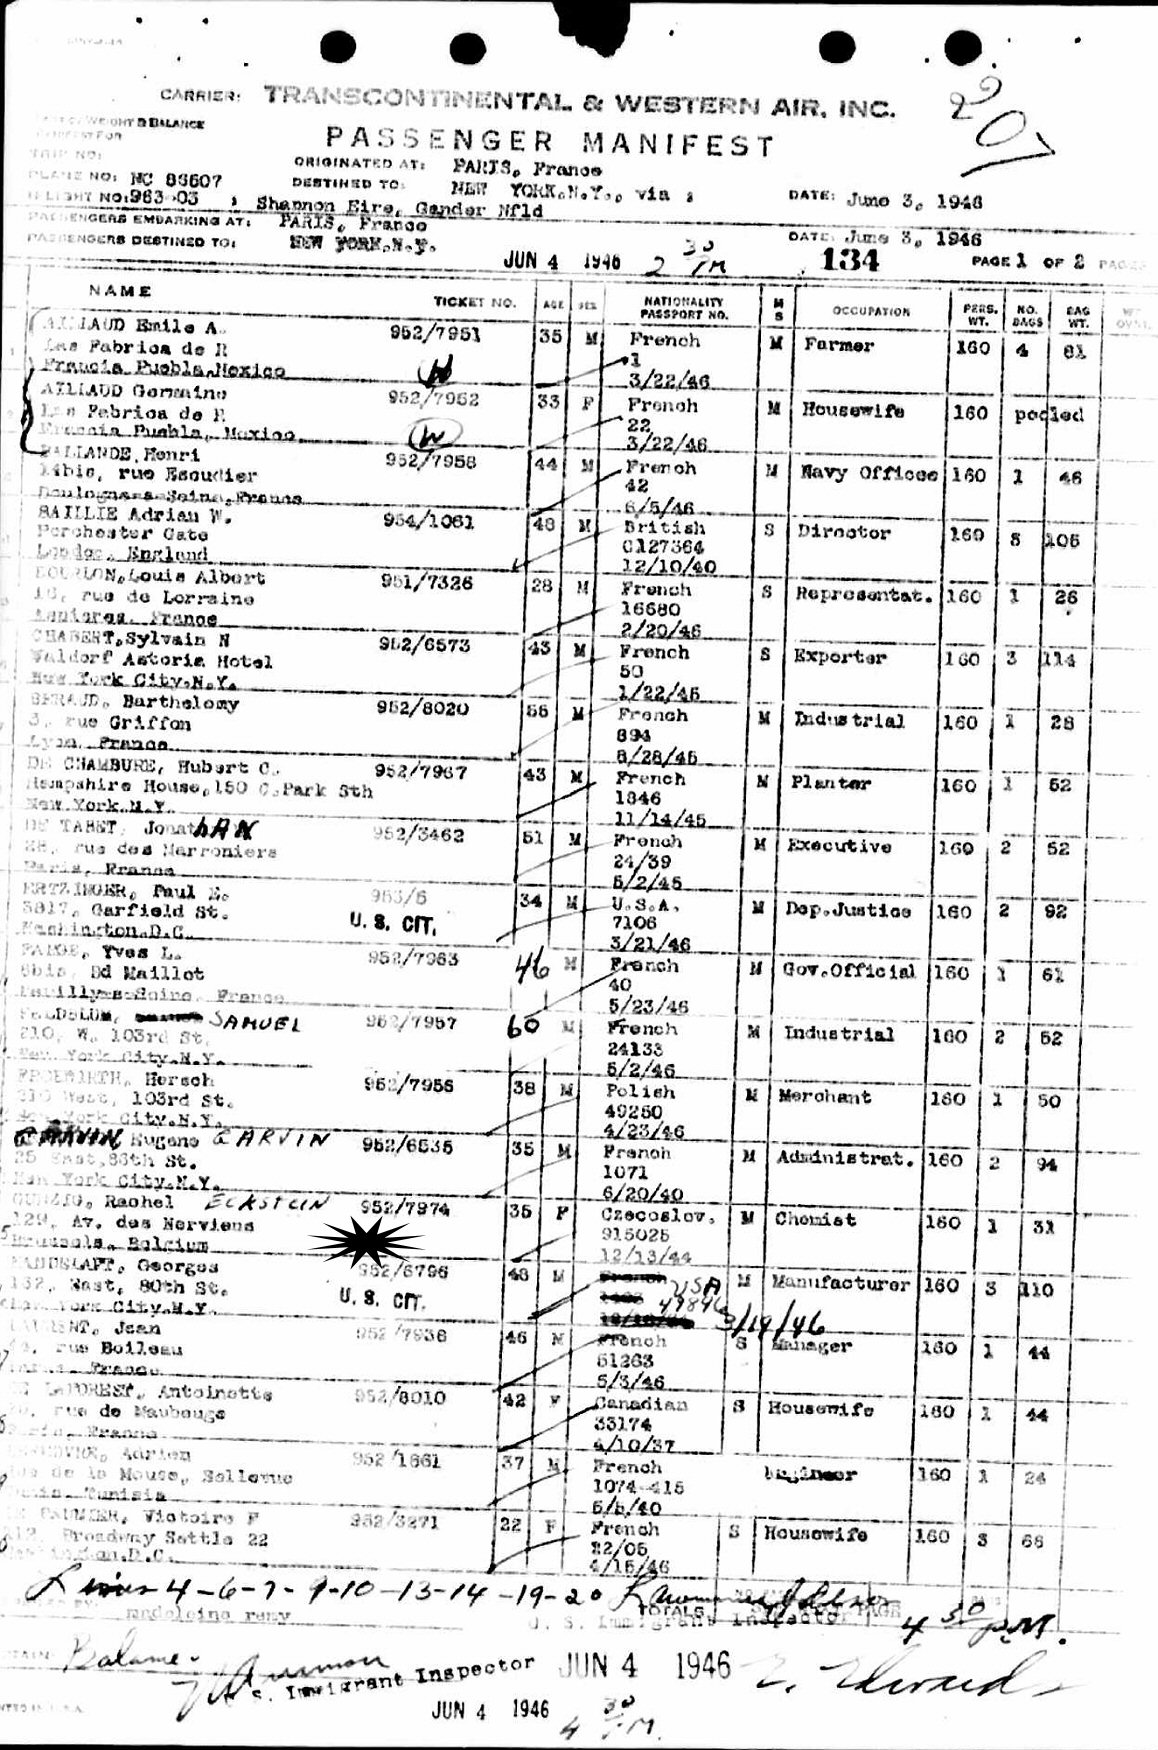 20
CARRIER: TRANSCONTINENTAL & WESTERN AIR, INC.
WEIGHT & BALANCE
PASSENGER MANIFEST
TRIP NO:
ORIGINATED AT: PARIS, France
PLANE NO: NC 86607 DESTINED TO: NEW YORK.N.Y., via :
DATE: June 3, 1946
FLIGHT NO: 963-03 : Shannon Eire, Gander Nfld
PASSENGERS EMBARKING AT: PARIS, France
DATE: June 3, 1946
PASSENGERS DESTINED TO: NEW YORK.N.Y.
JUN 4 1946 2 30 PM 134 PAGE 1 OF 2 PAGES
NAME TICKET NO. AGE SEX NATIONALITY PASSPORT NO. M S OCCUPATION PERS. WT. NO. BAGS BAG WT.
AILLAUD Emile A. 952/7951 35 M French M Farmer 160 4 81
Las Fabrica de R 1
Francia Puebla,Mexico 3/22/46
AILLAUD Germaine 952/7952 33 F French M Housewife 160 pooled
Las Fabrica de R 22
Francia Puebla, Mexico 3/22/46
BALLANDE,Henri 952/7958 44 M French M Navy Officee 160 1 46
14bis, rue Escudier 42
Boulogne-s-Seine,France 6/5/46
BAILLIE Adrian W. 954/1061 48 M British S Director 160 105
Porchester Gate C127364
London, England 12/10/40
BOURLON,Louis Albert 951/7326 28 M French S Representat. 160 1 26
rue de Lorraine 16680
Asnieres, France 2/20/46
CHABERT,Sylvain N 952/6573 43 M French S Exporter 160 3 114
Waldorf Astoria Hotel 50
New York City.N.Y. 1/22/45
BERAUD, Barthelomy 952/8020 M French M Industrial 160 1 28
3, rue Griffon 894
Lyon, France 8/28/45
DE CHAMBURE, Hubert C. 952/7967 43 M French M Planter 160 1 52
Hampshire House,150 C.Park Sth 1846
New York.N.Y. 11/14/45
DE TABET, JonatHAN 952/3462 51 M French M Executive 160 2 52
28, rue des Marroniers 24/39
Paris, France 5/2/45
ERTZINGER, Paul E. 953/5 34 M U.S.A. M Dep.Justice 160 2 92
3817, Garfield St. U. S. CIT. 7106
Washington.D.C. 3/21/46
Yves L. 952/7963 46 M French M Gov.Official 160 1 61
6bis, Bd Maillot 40
Neuilly-s-Seine, France 5/23/46
FELDBLUM, SAMUEL 952/7957 60 M French M Industrial 160 2 52
210, W. 103rd St. 24133
New York City.N.Y. 5/2/46
Hersch 952/7956 38 M Polish M Merchant 160 1 50
210 West, 103rd St. 49250
New York City.N.Y. 4/23/46
Eugene GARVIN 952/6535 35 M French M Administrat. 160 2 94
25 East,86th St. 1071
New York City.N.Y. 6/20/40
Rachel ECKSTEIN 952/7974 35 F Czecoslov. M Chemist 160 1 31
129, Av. des Nerviens 915025
Brussels, Belgium 12/13/44
LANDSLAFT, Georges 952/6796 48 M USA M Manufacturer 160 3 110
132, East, 80th St. U. S. CIT. 49846
New York City.N.Y. 3/19/46
LAURENT, Jean 952/7936 46 M French S Manager 160 1 44
rue Boileau 51263
Paris, France 5/3/46
DE LAFOREST, Antoinette 952/8010 42 F Canadian S Housewife 160 1 44
rue de Maubeuge 33174
Paris, France 4/10/37
Adrien 952/1661 37 M French Engineer 160 1 24
de la Mouse, Bellevue 1074-415
Tunis.Tunisia 5/5/40
Victoire F 952/3271 22 F French S Housewife 160 3 68
Broadway Settle 22 22/05
Washington.D.C. 4/15/46
Lines 4-6-7-9-10-13-14-19-20
madeleine remy TOTALS PAGE
U. S. Immigrant Inspector 4 30 P.M.
U. S. Immigrant Inspector JUN 4 1946
JUN 4 1946
4 30 P.M.